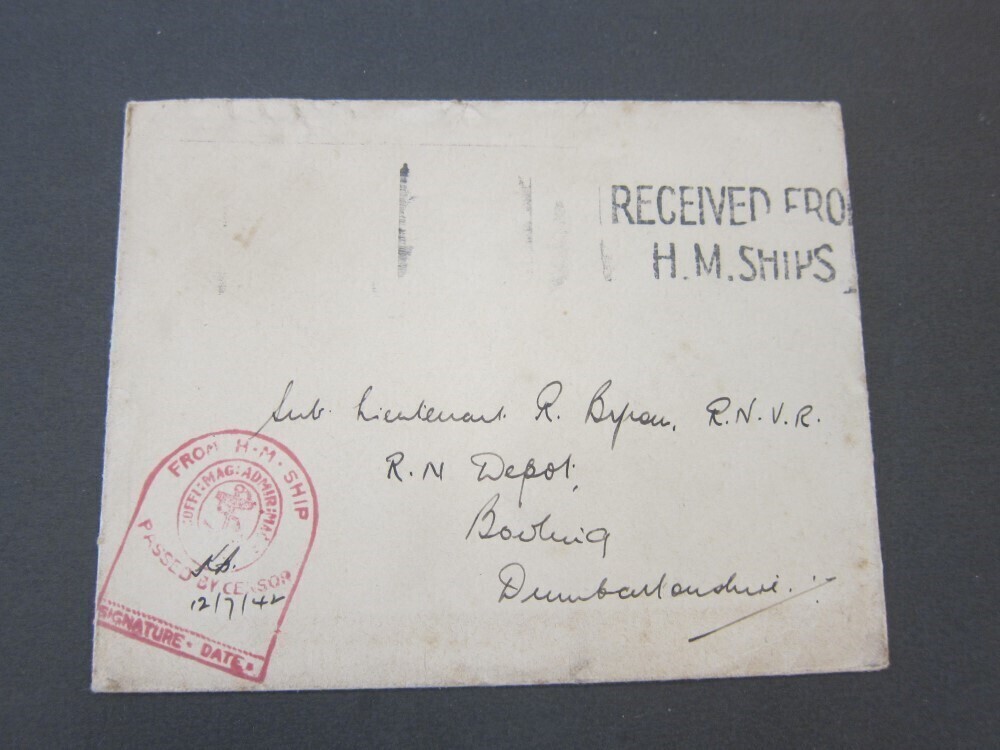 RECEIVED FRO
H.M. SHIPS
Sub. Lieutenant R. Byron, R.N.V.R.
R.N Depot,
Bowling
Dumbartonshire.
FROM H·M·SHIP
OFFI:MAG:ADMIR:MA
PASSED BY CENSOR
12/7/42
SIGNATURE · DATE